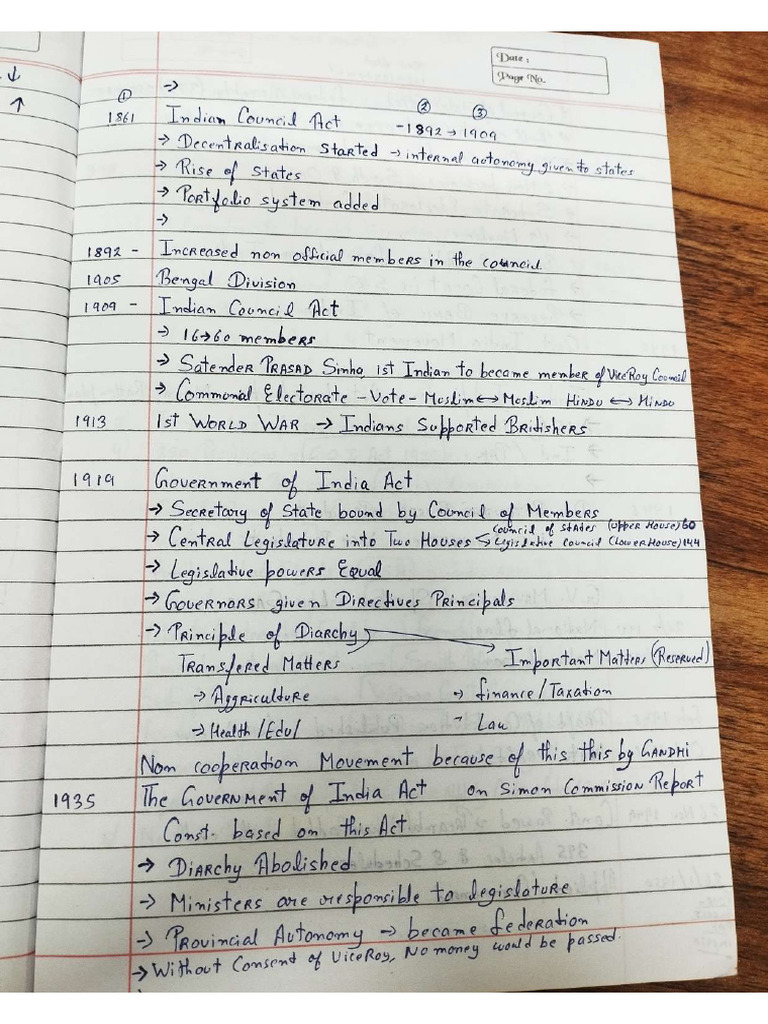 Date :
Page No.
→
① ② ③
1861 Indian Council Act - 1892 → 1909
→ Decentralisation Started → internal autonomy given to states
→ Rise of States
→ Portfolio system added
→
1892 - Increased non official members in the council.
1905 Bengal Division
1909 - Indian Council Act
→ 16→60 members
→ Satender Prasad Sinha, 1st Indian to became member of ViceRoy Council
→ Communal Electorate - Vote - Muslim ↔ Muslim Hindu ↔ Hindu
1913 1st World War → Indians Supported Britishers
1919 Government of India Act
→ Secretary of State bound by Council of Members
→ Central Legislature into Two Houses Council of States (Upper House) 60
Legislative Council (Lower House) 144
→ Legislative powers Equal
→ Governors given Directives Principals
→ Principle of Diarchy
Transfered Matters Important Matters (Reserved)
→ Aggriculture → finance/Taxation
→ Health/Edu/ - Law
Non cooperation Movement because of this this by Gandhi
1935 The Government of India Act on Simon Commission Report
Const. based on this Act
→ Diarchy Abolished
→ Ministers are responsible to legislature
→ Provincial Autonomy → became federation
→ Without Consent of ViceRoy, No money would be passed.